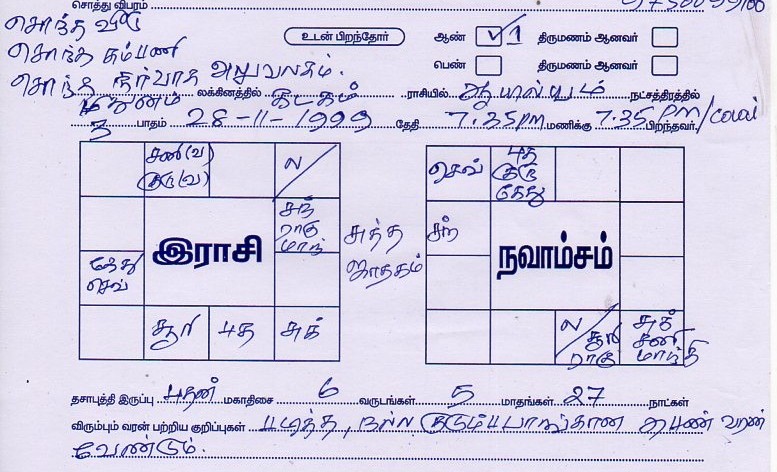 சொத்து விபரம்
சொந்த வீடு
சொந்த கம்பனி
சொந்த நிர்வாக அலுவலகம்.
உடன் பிறந்தோர் ஆண் 1 திருமணம் ஆனவர்
பெண் திருமணம் ஆனவர்
மிதுனம் லக்கினத்தில் கடகம் ராசியில் ஆயில்யம் நட்சத்திரத்தில்
3 பாதம் 28-11-1999 தேதி 7.35pm மணிக்கு 7.35 PM/covai பிறந்தவர்.
சனி(வ) குரு(வ) ல
சந் ராகு மாந்
இராசி
கேது செவ்
சூரி புத சுக்
சுத்த ஜாதகம்
செவ் புத குரு கேது
சந்
நவாம்சம்
ல சூரி ராகு சுக் சனி மாந்தி
தசாபுத்தி இருப்பு புதன் மகாதிசை 6 வருடங்கள் 5 மாதங்கள் 27 நாட்கள்
விரும்பும் வரன் பற்றிய குறிப்புகள் படித்த, நல்ல குடும்பபாங்கான பெண் வரன்
வேண்டும்.